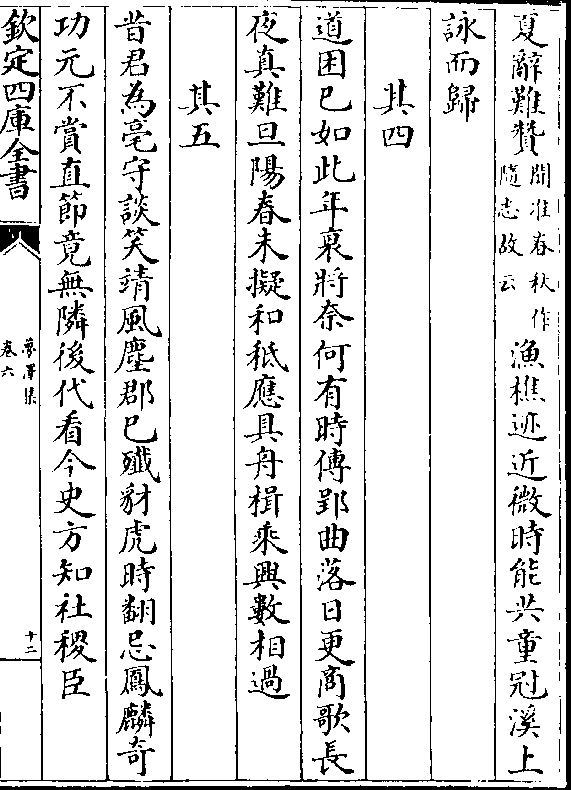 夏辭難贊聞淮春秋作隨志故云漁樵迹近微時能共童冠溪上
詠而歸
其四
道困已如此年衰將奈何有時傳郢曲落日更商歌長
夜真難旦陽春未擬和秪應具舟楫乘興數相過
其五
昔君為亳守談笑靖風塵郡已殲豺虎時翻忌鳳麟奇
功元不賞直節竟無隣後代看今史方知社稷臣
欽定四庫全書
夢澤集
卷六
十二